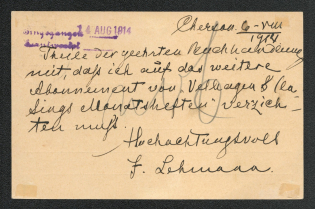 Eingegangen 14 AUG 1914
beantwortet
Cherson 6-VIII
1914
Theile der geehrten Buchhandlung
mit, daß ich auf das weitere
Abonnement von Velhagen & Kla-
sings Monatsheften verzich-
ten muß.
Hochachtungsvoll
F. Lehmann